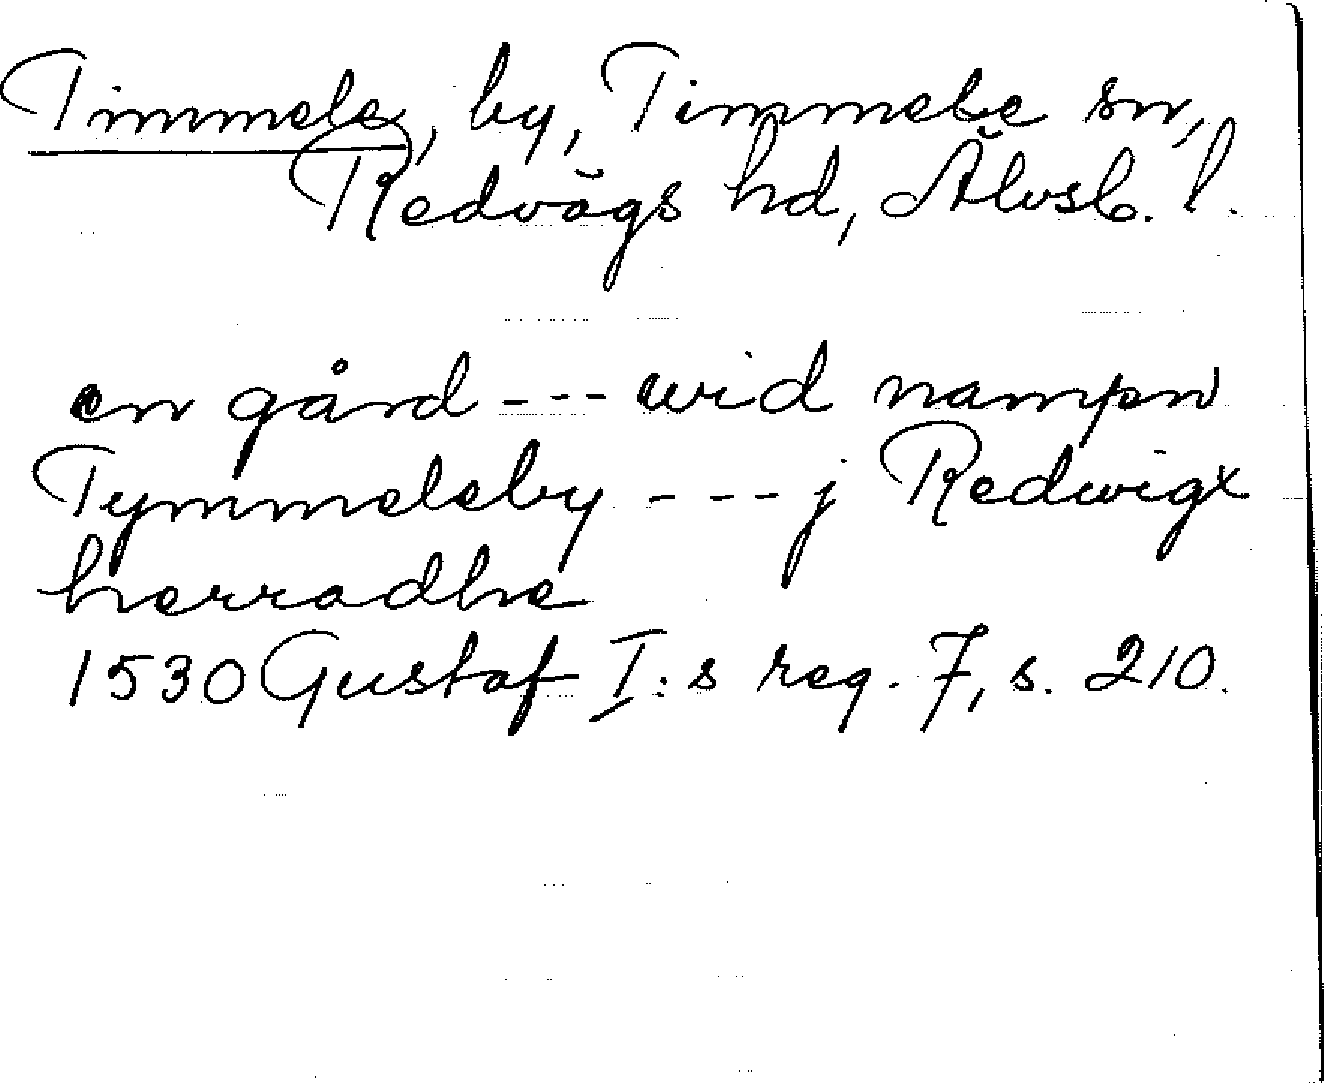 Timmele, by, Timmele sn,
Redvägs hd, Älvsb. l.
en gård --- wid nampn
Tymmeleby --- j Redwigx
herradhe
1530 Gustaf I:s reg. 7, s. 210.